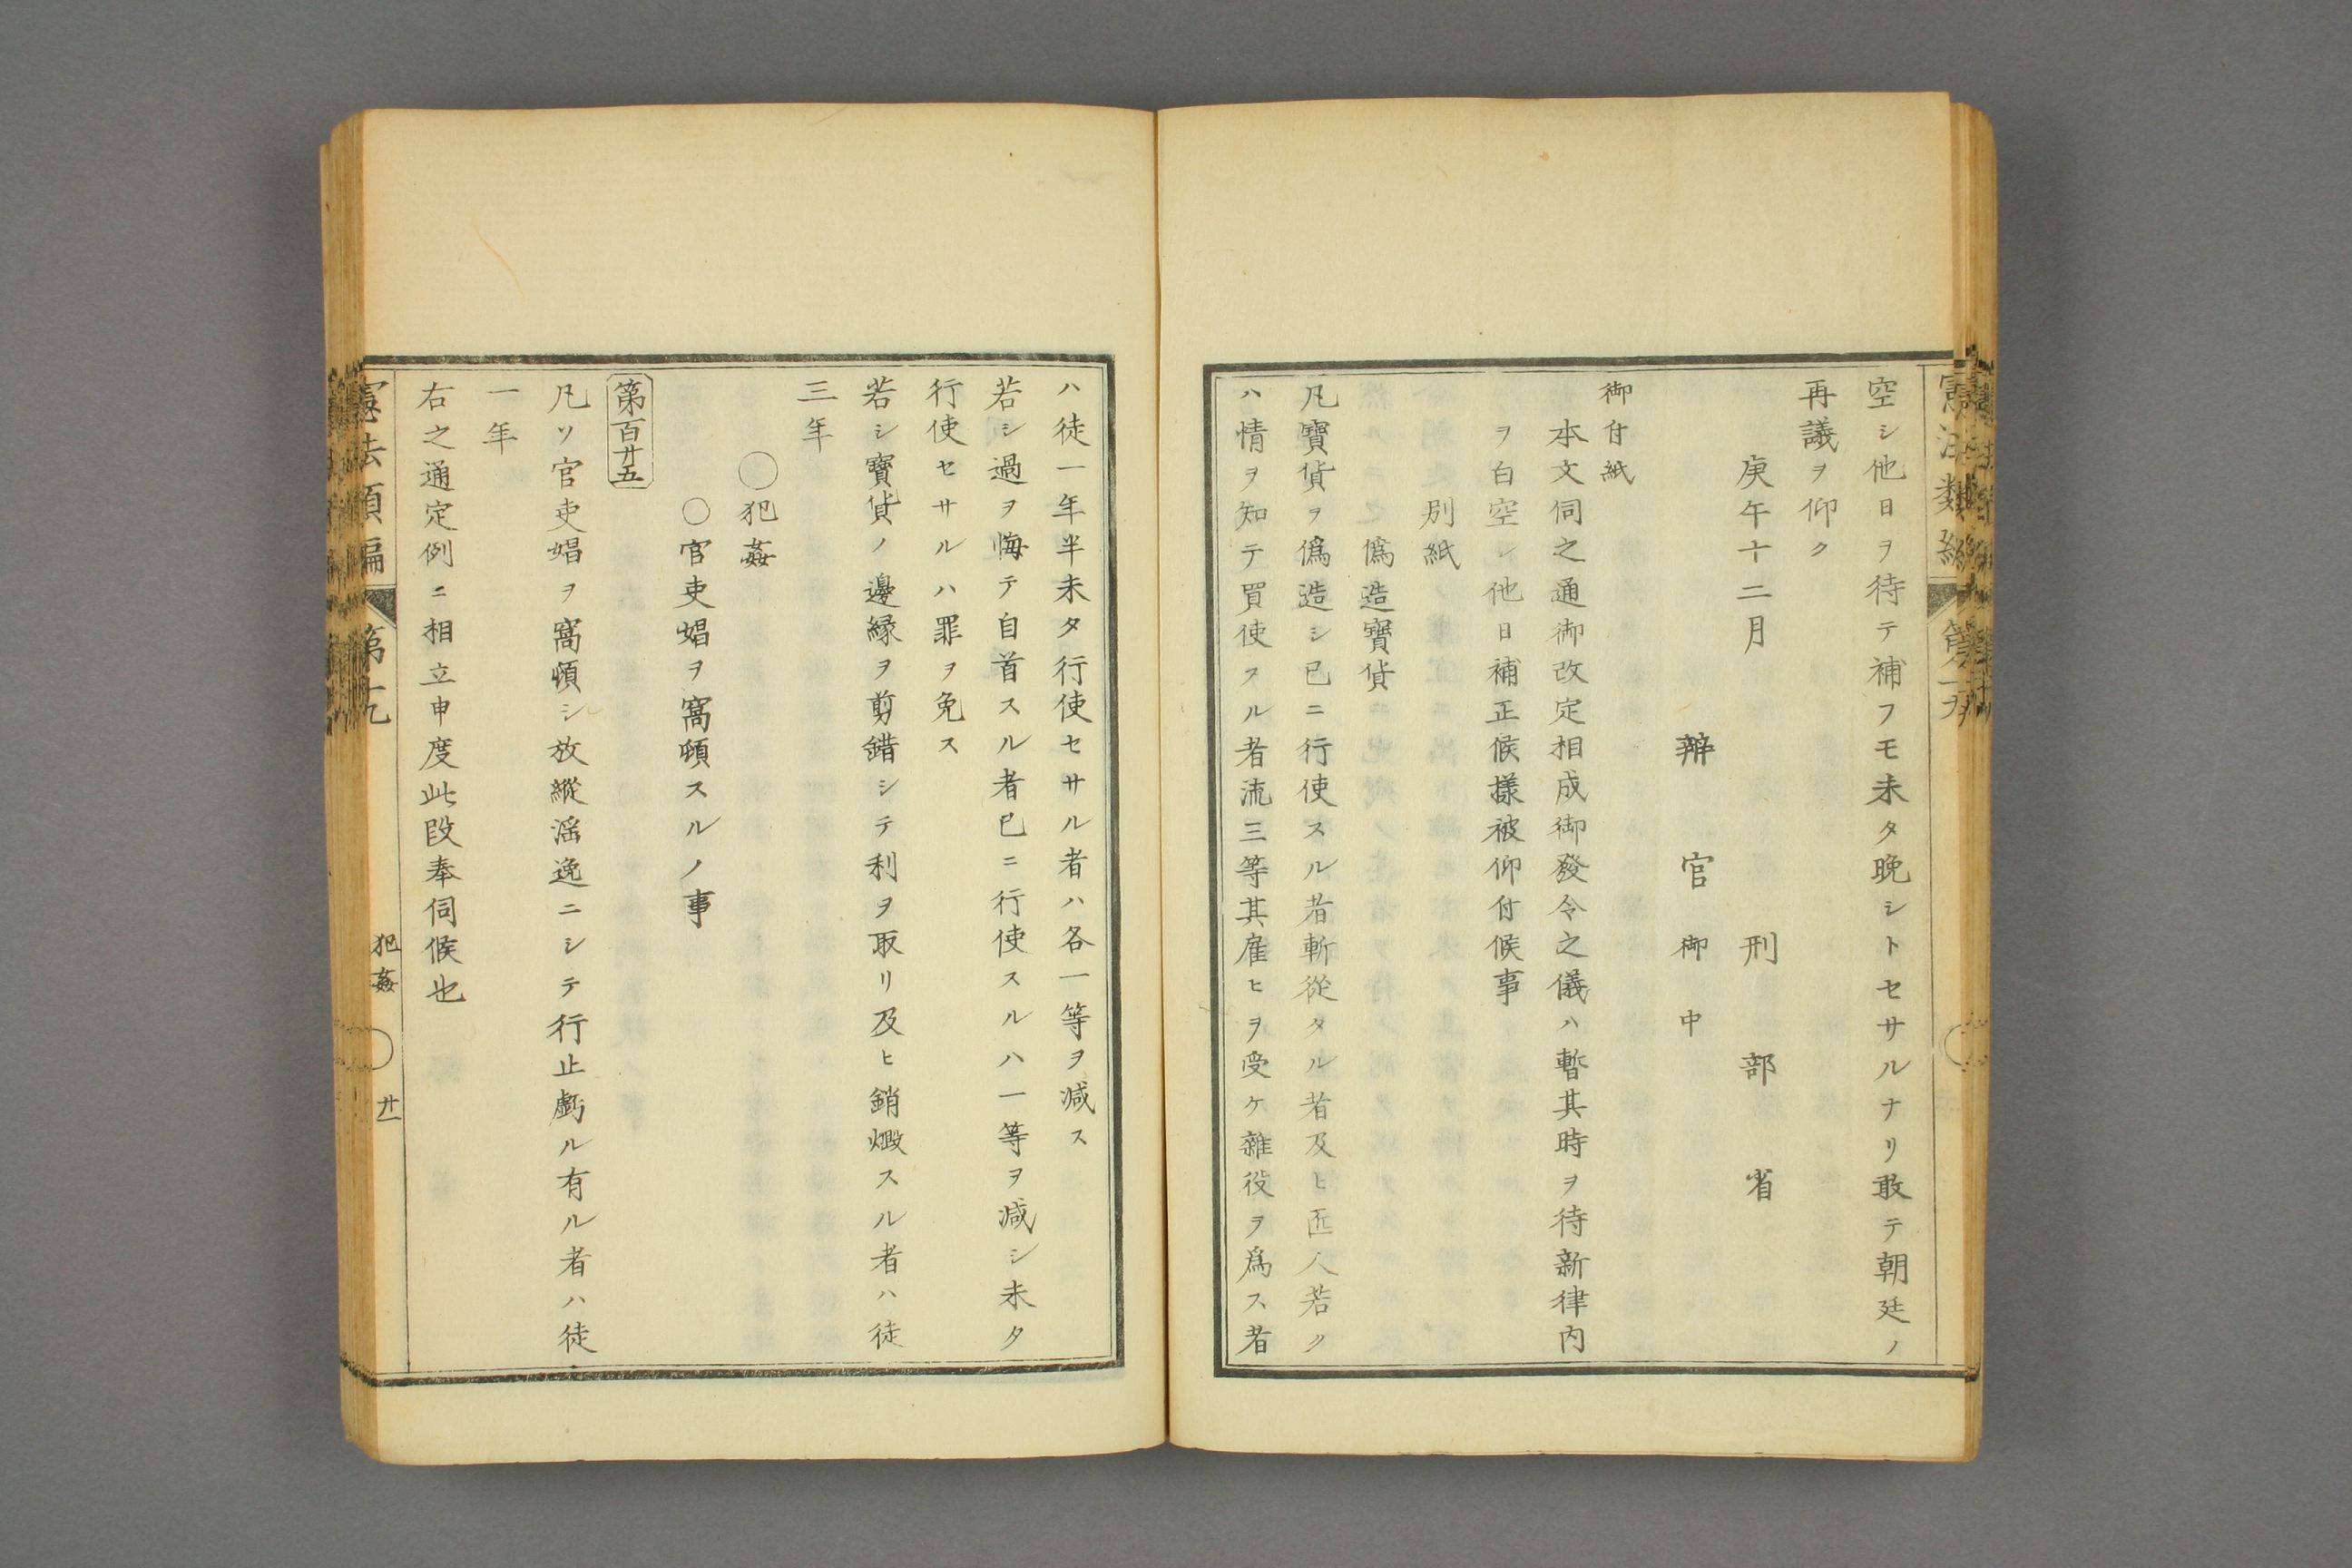 空シ他日ヲ待テ補フモ未タ晩シトセサルナリ敢テ朝廷ノ
再議ヲ仰ク
庚午十二月　刑部省
辨官御中
御付紙
本文伺之通御改定相成御發令之儀ハ暫其時ヲ待新律内
ヲ白空シ他日補正候樣被仰付候事
別紙
僞造寶貨
凡寶貨ヲ僞造シ已ニ行使スル者斬從タル者及ヒ匠人若ク
ハ情ヲ知テ買使スル者流三等其雇ヒヲ受ケ雜役ヲ爲ス者
ハ徒一年半未タ行使セサル者ハ各一等ヲ減ス
若シ過ヲ悔テ自首スル者已ニ行使スルハ一等ヲ減シ未タ
行使セサルハ罪ヲ免ス
若シ寶貨ノ邊緣ヲ剪錯シテ利ヲ取リ及ヒ銷燬スル者ハ徒
三年
○犯姦
○官吏娼ヲ窩頓スルノ事
第百廿五
凡ソ官吏娼ヲ窩頓シ放縱滛逸ニシテ行止虧ル有ル者ハ徒
一年
右之通定例ニ相立申度此段奉伺候也
憲法類編　第　犯姦　○　廿一